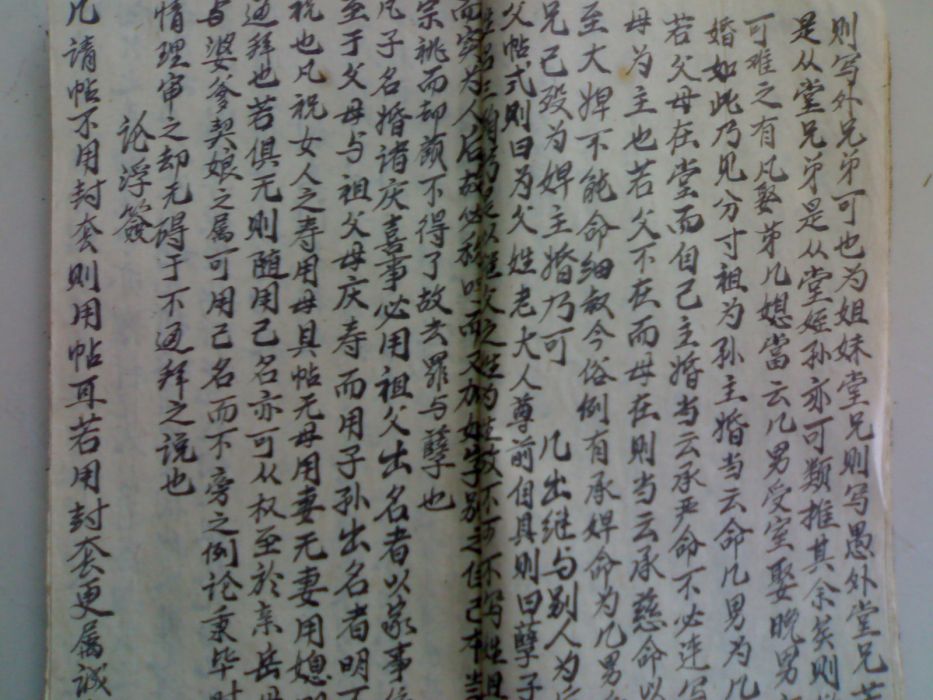 则写外兄弟可也为姐妹堂兄则写愚外堂兄
是从堂兄弟是从堂姪孙亦可类推其余矣则
可难之有凡娶弟几媳當云几男受室娶晚男
婚如此乃见分寸祖为孙主婚当云命几男为几
若父母在堂而自己主婚当云承严命不必连写
母为主也若父不在而母在则当云承慈命以
至大婢不能命细叙今俗例有承婢命为几男
兄已殁为婢主婚乃可 凡出继与别人为后
父帖式则曰为父姓老大人尊前自具则曰孽子
而实为人后故必称
宗祧而却颜不得了故去罪与孽也
凡子名婚诸庆喜事必用祖父出名者以家事
至于父母与祖父母庆寿而用子孙出名者明
祝也凡祝女人之寿用母具帖无母用妻无妻用媳
通拜也若俱无则随用己名亦可从权至於亲岳母
与婆爹契娘之属可用己名而不旁之例论秉毕
情理审之却无碍于不通拜之说也
论浮簽
凡请帖不用封套则用帖耳若用封套更属诚